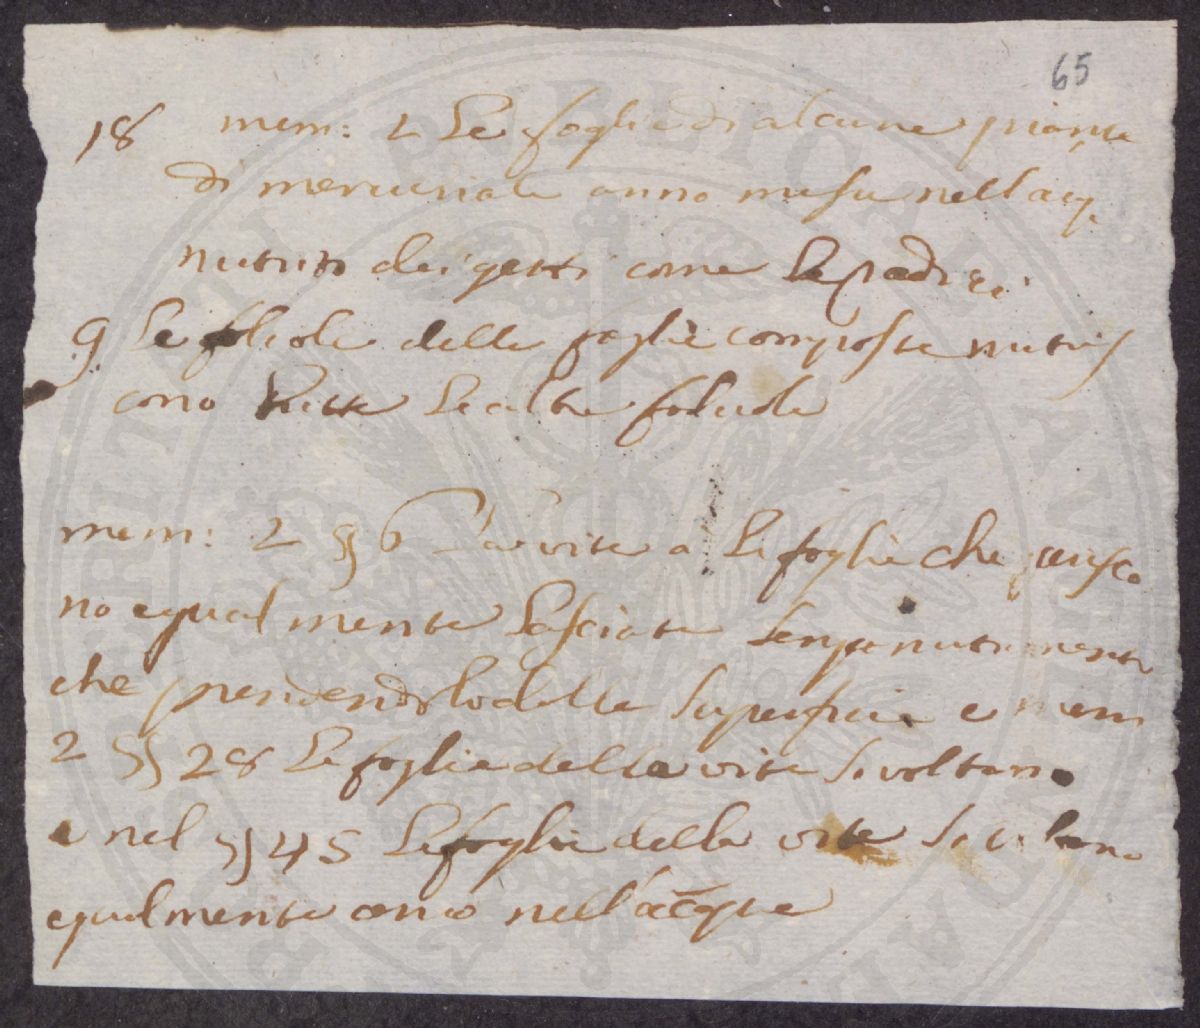 65
18 mem: 2 Le foglie di alcune piante
di mercuriale anno messe nell acq.
nutriti dei getti come le radici
9 Le foliole delle foglie composte nutris
cono tutte le altre foliole
mem: 2 § 6 La vite a le foglie che perisco
no egualmente lasciate senza nutrimento
che prendendolo della superficie e mem
2 §§ 28 Le foglie della vite si voltano
e nel §§ 45 Le foglie della vite si voltano
egualmente anco nell'acque